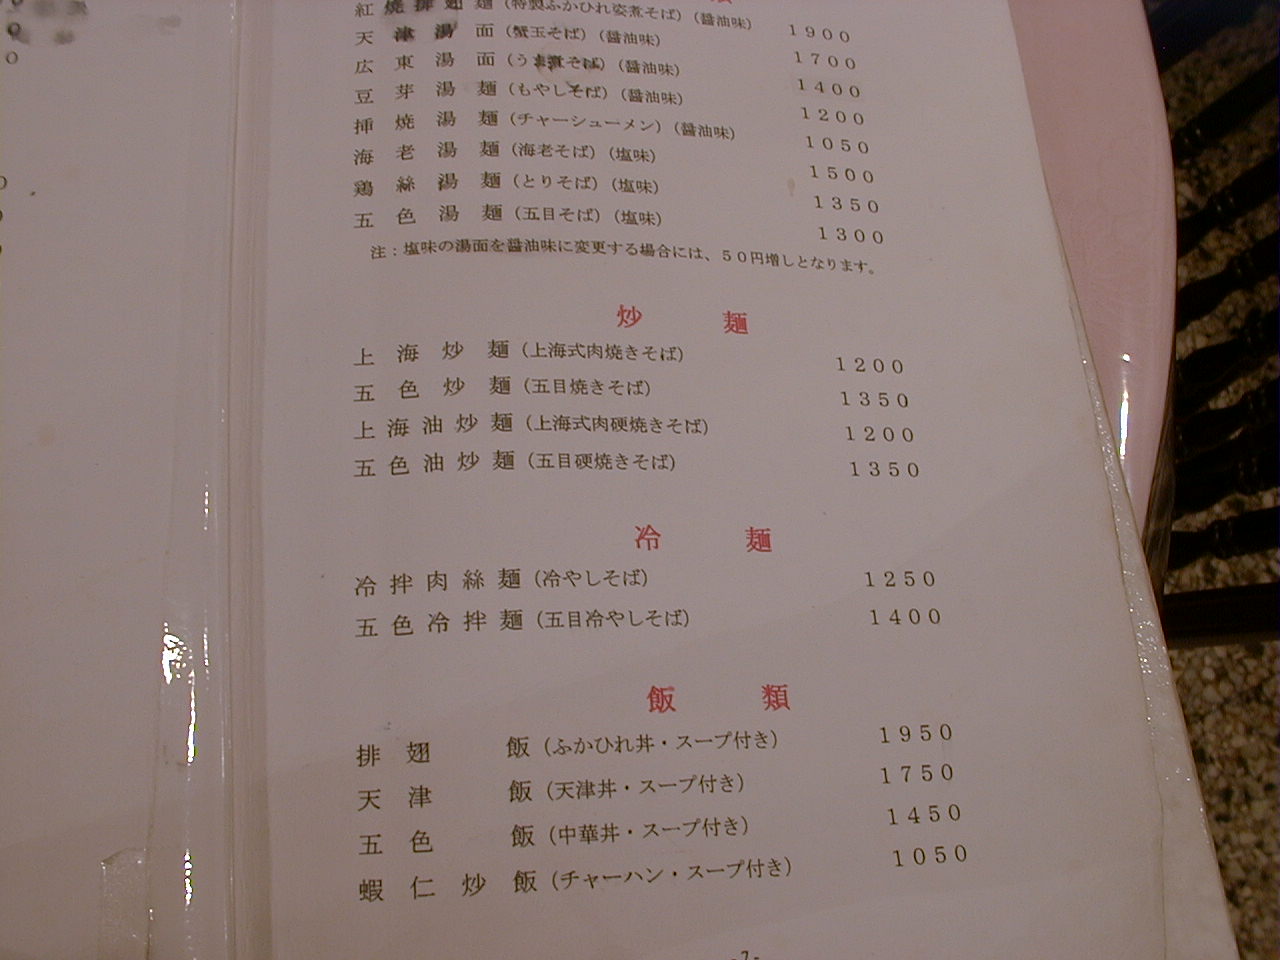 紅焼排翅麺（特製ふかひれ姿煮そば）（醤油味） 1900
天津湯面（蟹玉そば）（醤油味） 1700
広東湯面（うま煮そば）（醤油味） 1400
豆芽湯麺（もやしそば）（醤油味） 1200
挿焼湯麺（チャーシューメン）（醤油味） 1050
海老湯麺（海老そば）（塩味） 1500
鶏絲湯麺（とりそば）（塩味） 1350
五色湯麺（五目そば）（塩味） 1300
注：塩味の湯面を醤油味に変更する場合には、５０円増しとなります。
炒麺
上海炒麺（上海式肉焼きそば） 1200
五色炒麺（五目焼きそば） 1350
上海油炒麺（上海式肉硬焼きそば） 1200
五色油炒麺（五目硬焼きそば） 1350
冷麺
冷拌肉絲麺（冷やしそば） 1250
五色冷拌麺（五目冷やしそば） 1400
飯類
排翅飯（ふかひれ丼・スープ付き） 1950
天津飯（天津丼・スープ付き） 1750
五色飯（中華丼・スープ付き） 1450
蝦仁炒飯（チャーハン・スープ付き） 1050
-7-